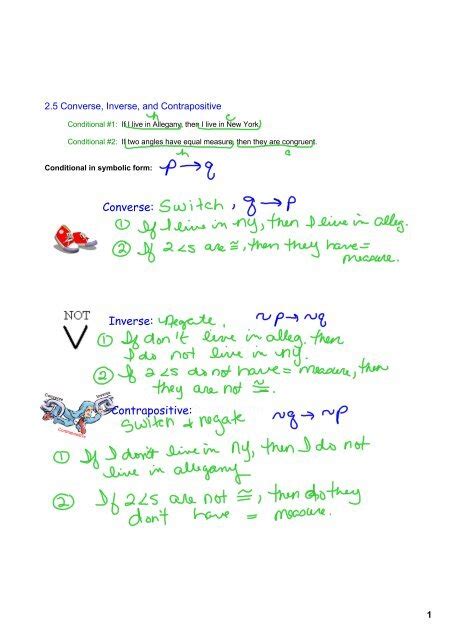 2.5 Converse, Inverse, and Contrapositive
h c
Conditional #1: If I live in Allegany, then I live in New York.
Conditional #2: If two angles have equal measure, then they are congruent.
h c
Conditional in symbolic form: p → q
Converse: Switch, q → p
① If I live in NY, then I live in alleg.
② If 2 <s are ≅, then they have =
measure.
NOT
V
Inverse: Negate. ~p → ~q
① If don't live in alleg. then
I do not live in NY.
② If 2 <s do not have = measure, then
they are not ≅.
Converse Inverse
Contrapositive
Contrapositive: ~q → ~p
Switch & negate
① If I don't live in NY, then I do not
live in allegany
② If 2 <s are not ≅, then they
don't have = measure.
1